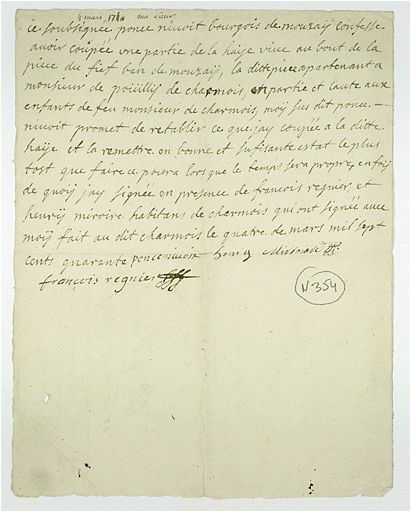 4 mars 1740
ie soubsignee ponce nivoit bourgois de mouzaÿ confesse
avoir coupée une partie de la haÿe vive au bout de la
piece du fief ban de mouzaÿ, la ditte piece apartenant a
monsieur de pouilly de charmois, en partie et lautre aux
enfants de feu monsieur de charmois, moÿ sus dit ponce
nivoit promet de retablir ce que jay coupée a la ditte
haÿe et la remettre en bonne et sufisante estat le plus
tost que faire ce poura lorsque le temps sera propre, en foÿ
de quoÿ jay signée en presence de francois regnier et
henrÿ miroire habitans de charmois qui ont signée avec
moÿ fait au dit charmois le quatre de mars mil sept
cents quarante ponce nivoit henry
françois regnier
N 354